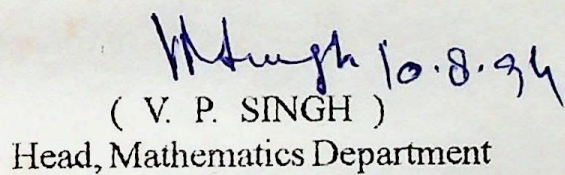 VPSingh 10.8.94
( V. P. SINGH )
Head, Mathematics Department